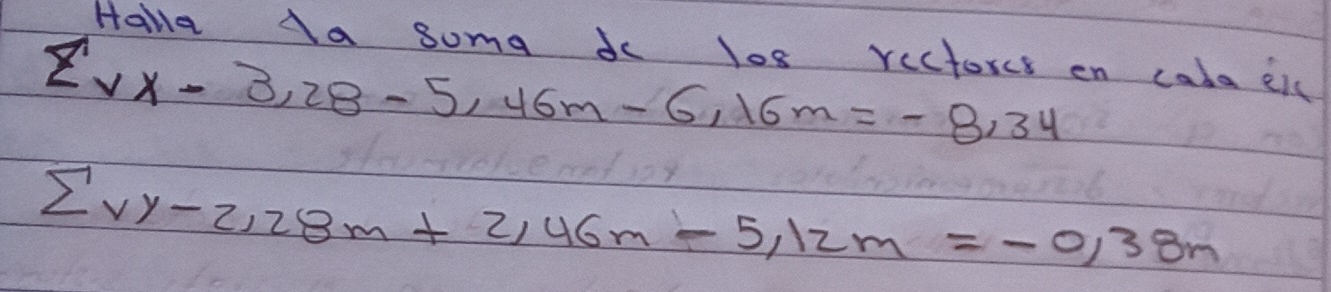 Halla la suma de los vectores en cada eje
Σvx - 3,28 - 5,46m - 6,16m = - 8,34
Σvy - 2,28m + 2,46m - 5,12m = - 0,38m